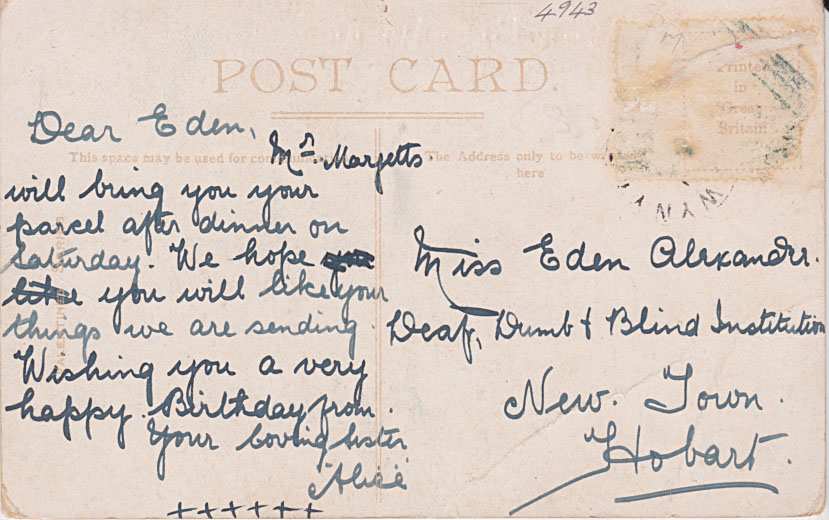 4943
POST CARD.
Printed
in
Great
Britain
WYNY
Dear Eden,
Mrs. Margetts
This space may be used for communication
The Address only to be written
here
will bring you your
parcel after dinner on
Saturday. We hope you
like you will like your
things we are sending.
Wishing you a very
happy Birthday from.
Your loving sister
Alice
++++++
Miss Eden Alexander.
Deaf, Dumb & Blind Institution
New. Town.
Hobart.